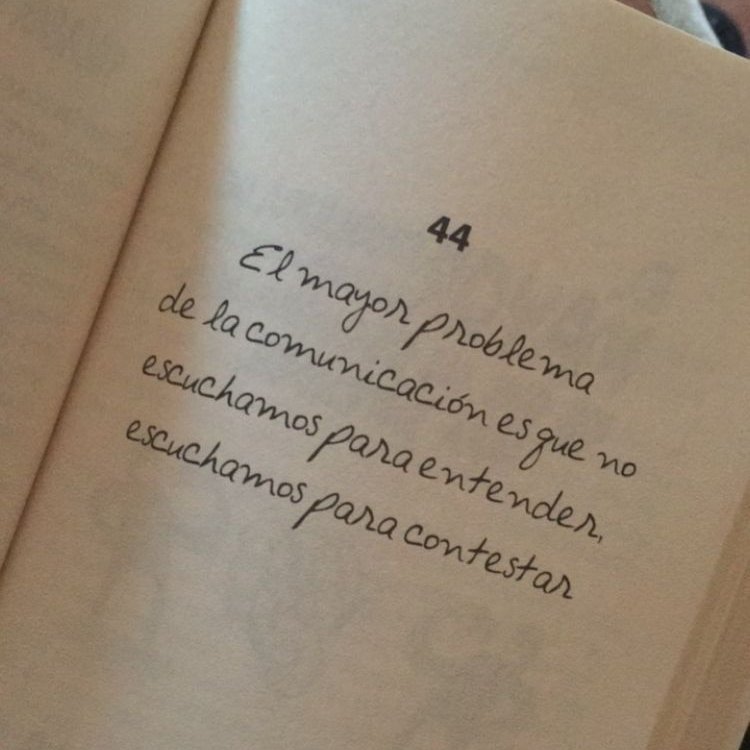 44
El mayor problema
de la comunicación es que no
escuchamos para entender,
escuchamos para contestar